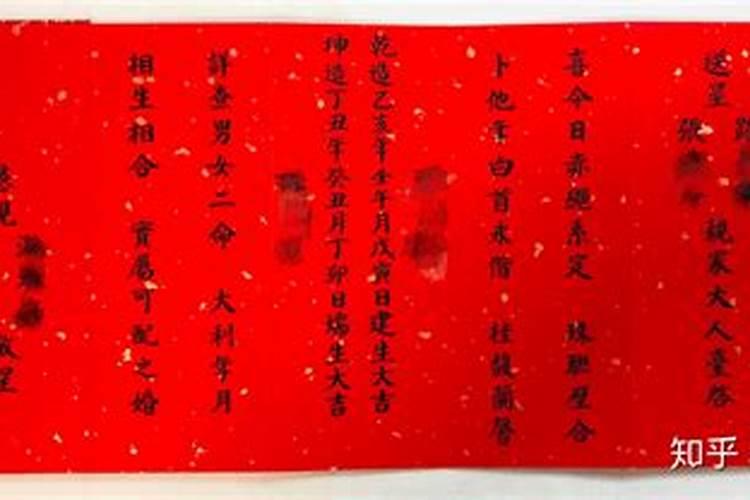 送呈 張 親家大人臺啓
喜今日赤繩系定 珠聯璧合
卜他年白首永偕 桂馥蘭馨
乾造乙亥年壬午月戊寅日建生大吉
坤造丁丑年癸丑月丁卯日生大吉
詳查男女二命 大利年月
相生相合 實屬可配之婚
呈
知乎